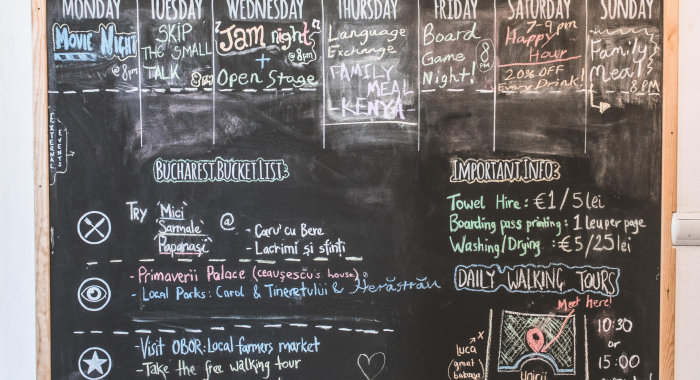 MONDAY TUESDAY WEDNESDAY THURSDAY FRIDAY SATURDAY SUNDAY
Movie Night
@ 8pm
SKIP
THE SMALL
TALK
8pm
Jam night
@8pm
+
Open Stage
Language
Exchange
FAMILY
MEAL
-KENYA-
Board
Game
Night!
8
PM
7-9pm
Happy
Hour
20% OFF
Every Drink!
Family
Meal
8PM
EXTERNAL
EVENTS
BUCHAREST.BUCKET.LIST:
Try 'Mici'
'Sarmale'
'Papanași'
@
- Caru' cu Bere
- Lacrimi și sfinți
- Primaverii Palace (ceaușescu's house)
- Local Parks: Carol & Tineretului & Herăstrău
- Visit OBOR: Local farmers market
- Take the free walking tour
IMPORTANT.INFO:
Towel Hire: €1/5 lei
Boarding pass printing: 1 leu per page
Washing/Drying: €5/25 lei
DAILY WALKING TOURS
Meet here!
Luca
great
Unirii
10:30
or
15:00